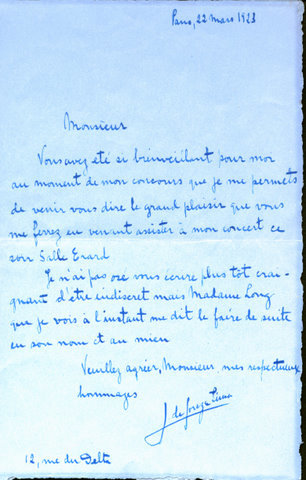 Paris, 22 mars 1923
Monsieur
Vous avez été si bienveillant pour moi
au moment de mon concours que je me permets
de venir vous dire le grand plaisir que vous
me ferez en venant assister à mon concert ce
soir Salle Erard
Je n'ai pas osé vous écrire plus tôt crai-
gnant d'être indiscret mais Madame Long
que je vois à l'instant me dit le faire de suite
en son nom et au mien
Veuillez agréer, Monsieur mes respectueux
hommages
J de
12, rue du Delta